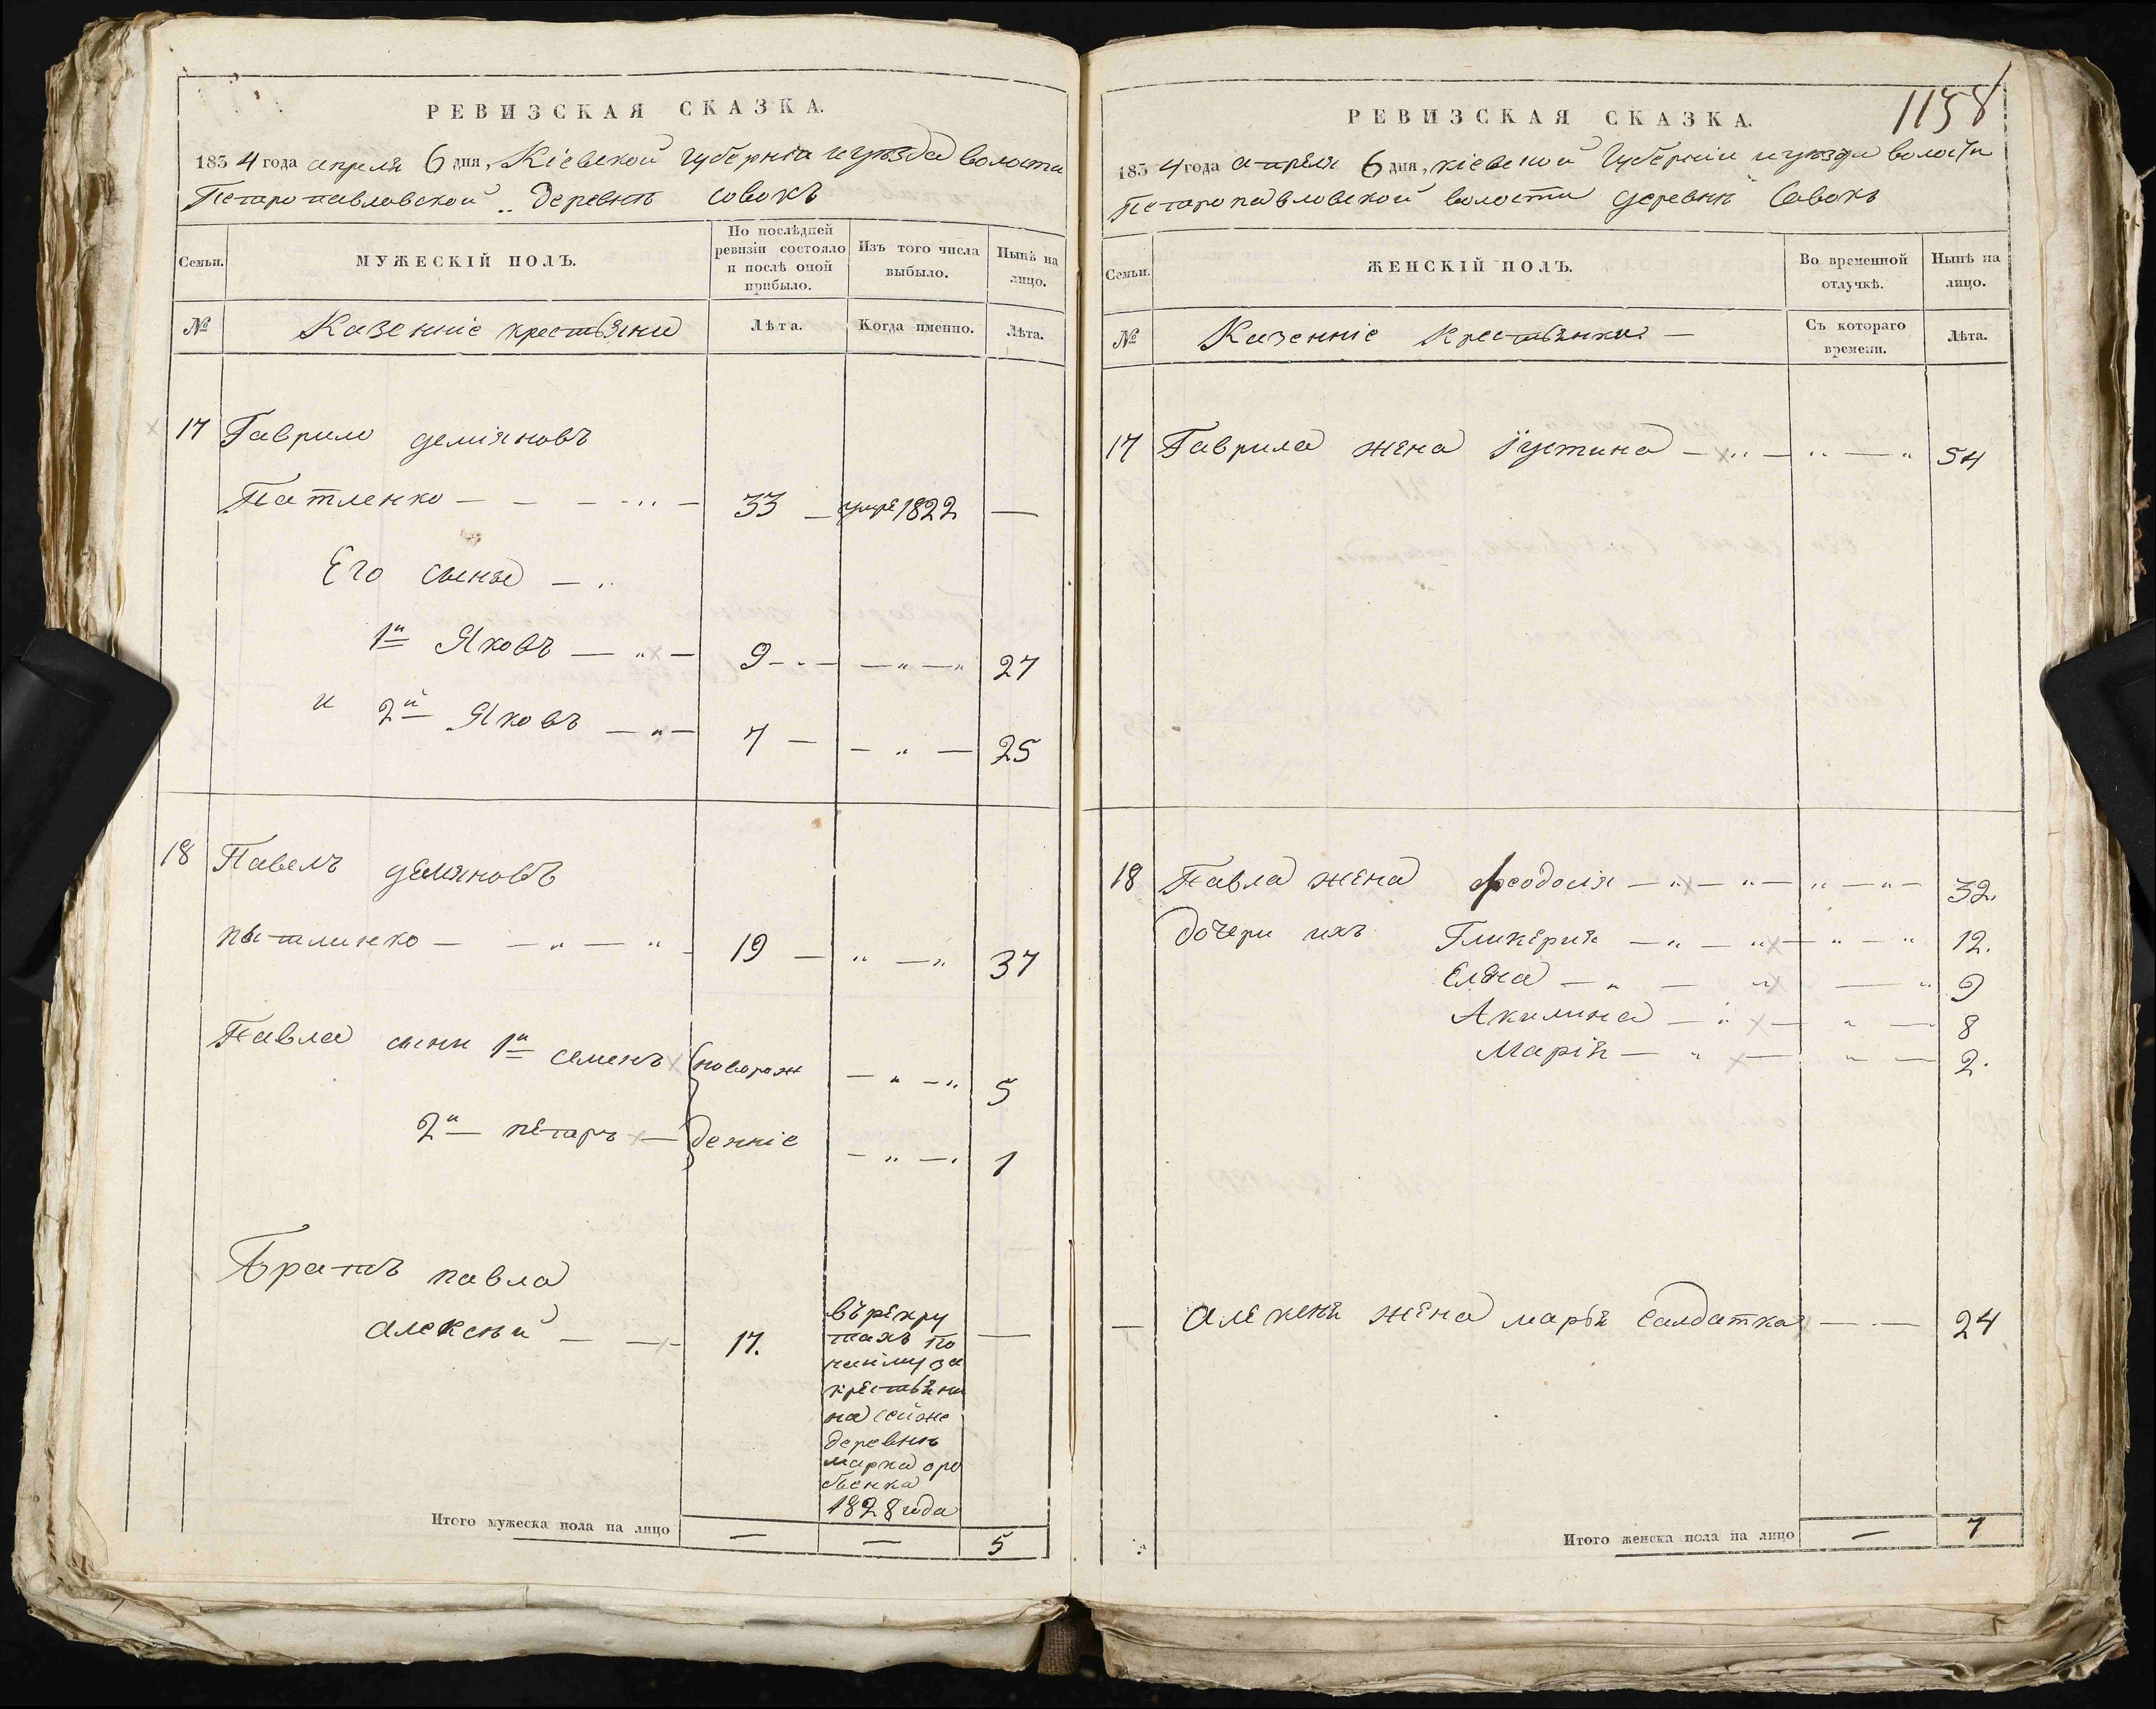 РЕВИЗСКАЯ СКАЗКА.
1834 года апреля 6 дня, Кіевской губерніи и уѣзда волости
Петропавловской деревнѣ совокъ
Семьи. МУЖЕСКІЙ ПОЛЪ. По послѣдней ревизіи состояло и послѣ оной прибыло. Изъ того числа выбыло. Нынѣ на лицо.
№ Казенніе крестьяни Лѣта. Когда именно. Лѣта.
17 Гаврило деміяновъ
Патленко — 33 — умре 1822 —
Его сыны —
1й Яковъ — 9 — 27
и 2й Яковъ — 7 — 25
18 Павелъ демяновъ
пытлинко — 19 — 37
Павла сыни 1й семенъ новорож 5
2й петръ — денніе 1
Братъ павла
алексѣй — 17. въ рекру
тахъ по
найму за
крестьяни
на сейже
деревнѣ
марка
1828 года
—
Итого мужеска пола на лицо — — 5
1158
РЕВИЗСКАЯ СКАЗКА.
1834 года апреля 6 дня, кіевской губерніи и уѣзда волости
Петропавловской волости деревнѣ Совокъ
Семьи. ЖЕНСКІЙ ПОЛЪ. Во временной отлучкѣ. Нынѣ на лицо.
№ Казенніе Крестьянки — Съ котораго времени. Лѣта.
17 Гаврила жена Іустина — 54
18 Павла жена феодосія — 32.
дочери ихъ Гликерия — 12.
Елена — 9
Акилина — 8
Марія — 2.
— алексѣя жена марья салдатка — 24
Итого женска пола на лицо — 7